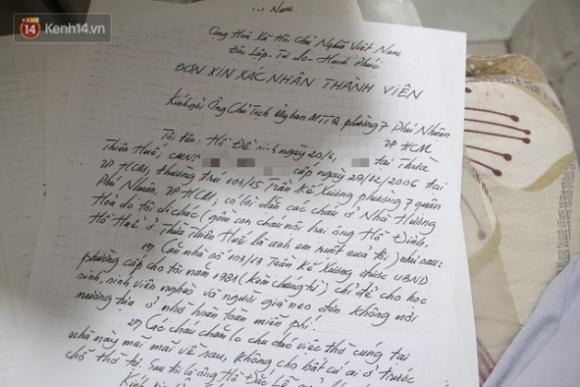 14 Kenh14.vn
Nam
Cộng Hoà Xã Hội Chủ Nghĩa Việt Nam
Độc Lập - Tự do - Hạnh Phúc
ĐƠN XIN XÁC NHẬN THÀNH VIÊN
Kính gởi Ông Chủ Tịch Ủy ban MTTQ phường 7 Phú Nhuận,
TP HCM
Tôi tên: Hồ Đệ sinh ngày 20/ tại Thừa
Thiên Huế; CMN: cấp ngày 20/12/2006 tại
TP HCM; thường trú 103/15 Trần Kế Xương phường 7 quận
Phú Nhuận, TP HCM; có lời dặn các cháu ở Nhà Hướng
do tôi di chúc (gồm con cháu nội hai ông Hồ Đính,
Hồ Huề ở Thừa Thiên Huế là anh em ruột của tôi) như sau:
1) Căn nhà số 103/13 Trần Kế Xương được UBND
phường cấp cho tôi năm 1981 (kèm chứng từ) chỉ để cho học
sinh, sinh viên nghèo và người già neo đơn không nơi
nương tựa ở nhờ hoàn toàn miễn phí.
2) Các cháu chăm lo chu đáo việc thờ cúng tại
nhà này mãi mãi về sau, không cho bất cứ ai ở trước
chỗ thờ tự. Sau tôi là ông Hồ Đắc